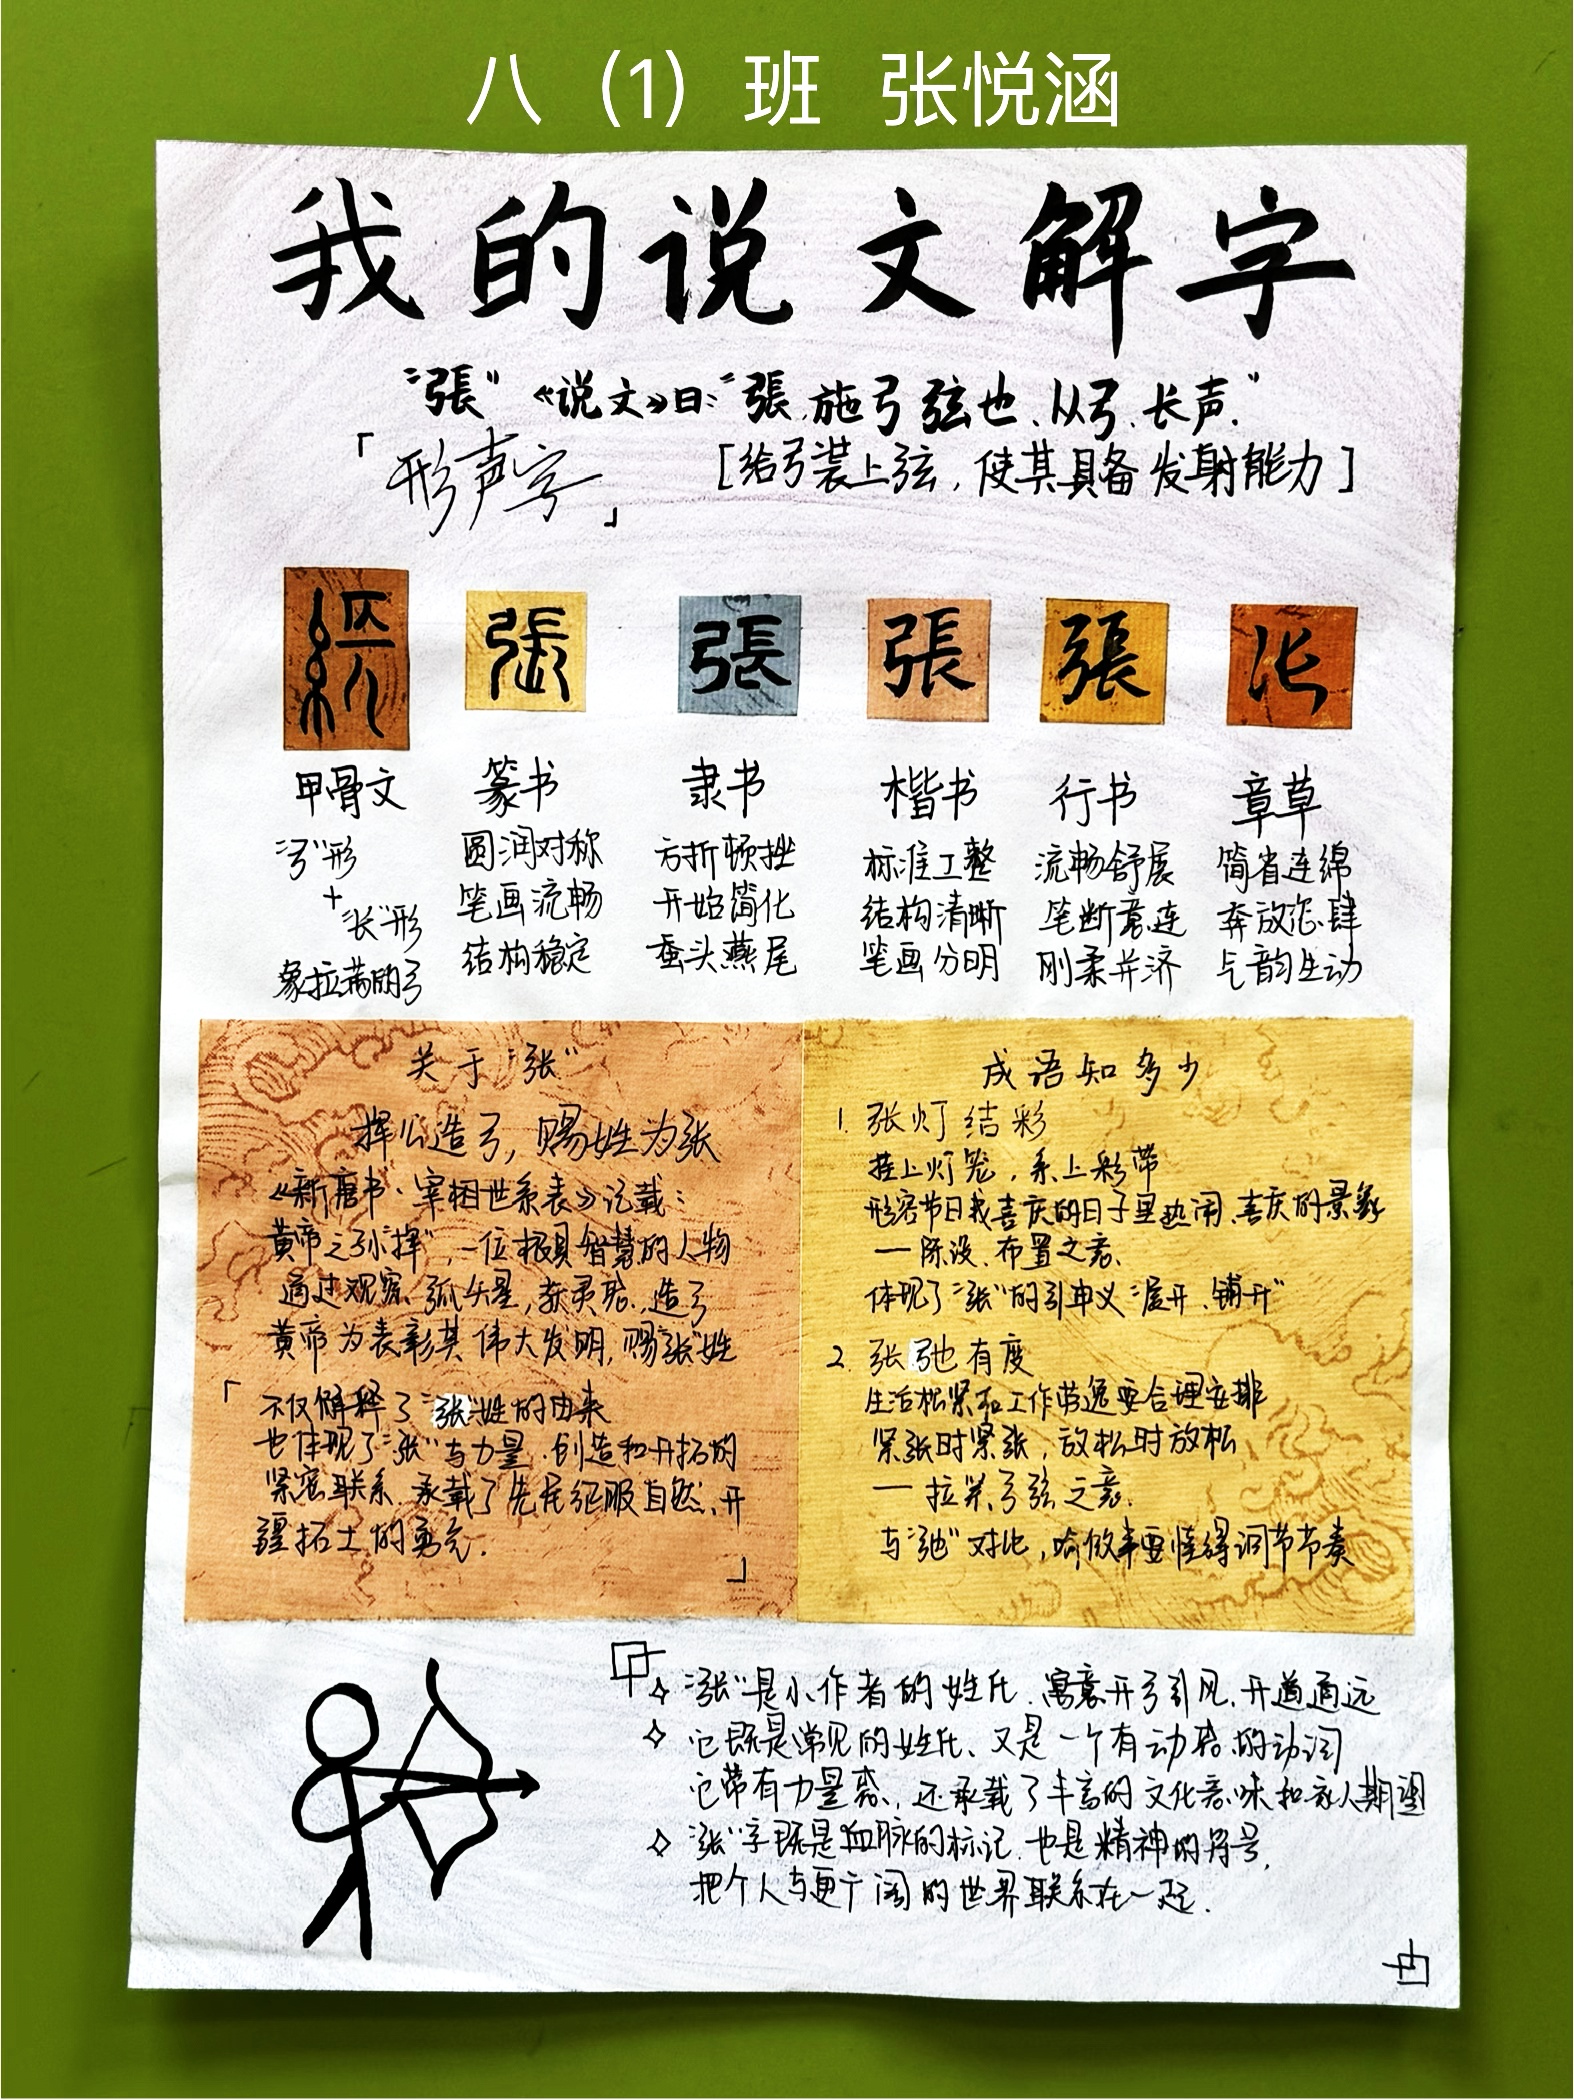 八（1）班 张悦涵
我的说文解字
"張"《说文》曰："張，施弓弦也，从弓，长声"
「形声字」
[给弓装上弦，使其具备发射能力]
張 張 張 張 张
甲骨文 篆书 隶书 楷书 行书 章草
"弓"形
+
"长"形
象拉满的弓
圆润对称
笔画流畅
结构稳定
方折顿挫
开始简化
蚕头燕尾
标准工整
结构清晰
笔画分明
流畅舒展
笔断意连
刚柔并济
简省连绵
奔放恣肆
气韵生动
关于"张"
挥公造弓，赐姓为张
《新唐书·宰相世系表》记载：
黄帝之孙"挥"，一位极具智慧的人物
通过观察弧矢星，获灵感，造弓
黄帝为表彰其伟大发明，赐"张"姓
「不仅解释了"张"姓的由来
也体现了"张"与力量、创造和开拓的
紧密联系，承载了先民征服自然、开
疆拓土的勇气.」
成语知多少
1. 张灯结彩
挂上灯笼，系上彩带
形容节日或喜庆的日子里热闹、喜庆的景象
— 陈设、布置之意
体现了"张"的引申义"展开、铺开"
2. 张弛有度
生活松紧和工作劳逸要合理安排
紧张时紧张，放松时放松
— 拉紧弓弦之意
与"弛"对比，喻做事要懂得调节节奏
"张"是小作者的姓氏，寓意开弓引风，开道通远
它既是常见的姓氏、又是一个有动感的动词
它带有力量感，还承载了丰富的文化意味和家人期望
"张"字既是血脉的标记，也是精神的符号，
把个人与更广阔的世界联系在一起.